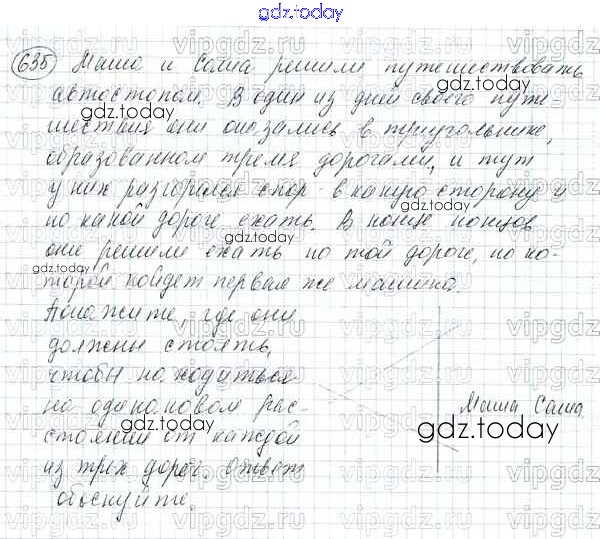 gdz.today
635 Миша и Саша решили путешествовать
автостопом. В один из дней своего путе-
шествия они оказались в треугольнике,
образованном тремя дорогами, и тут
у них разгорелся спор - в какую сторону и
по какой дороге ехать. В конце концов
они решили ехать по той дороге, по ко-
торой пойдет первая же машина.
Покажите, где они
должны стоять,
чтобы находиться
на одинаковом рас-
стоянии от каждой
из трех дорог. Ответ
обоснуйте.
Миша Саша
gdz.today
gdz.today
gdz.today
gdz.today
gdz.today
gdz.today
gdz.today
vipgdz.ru